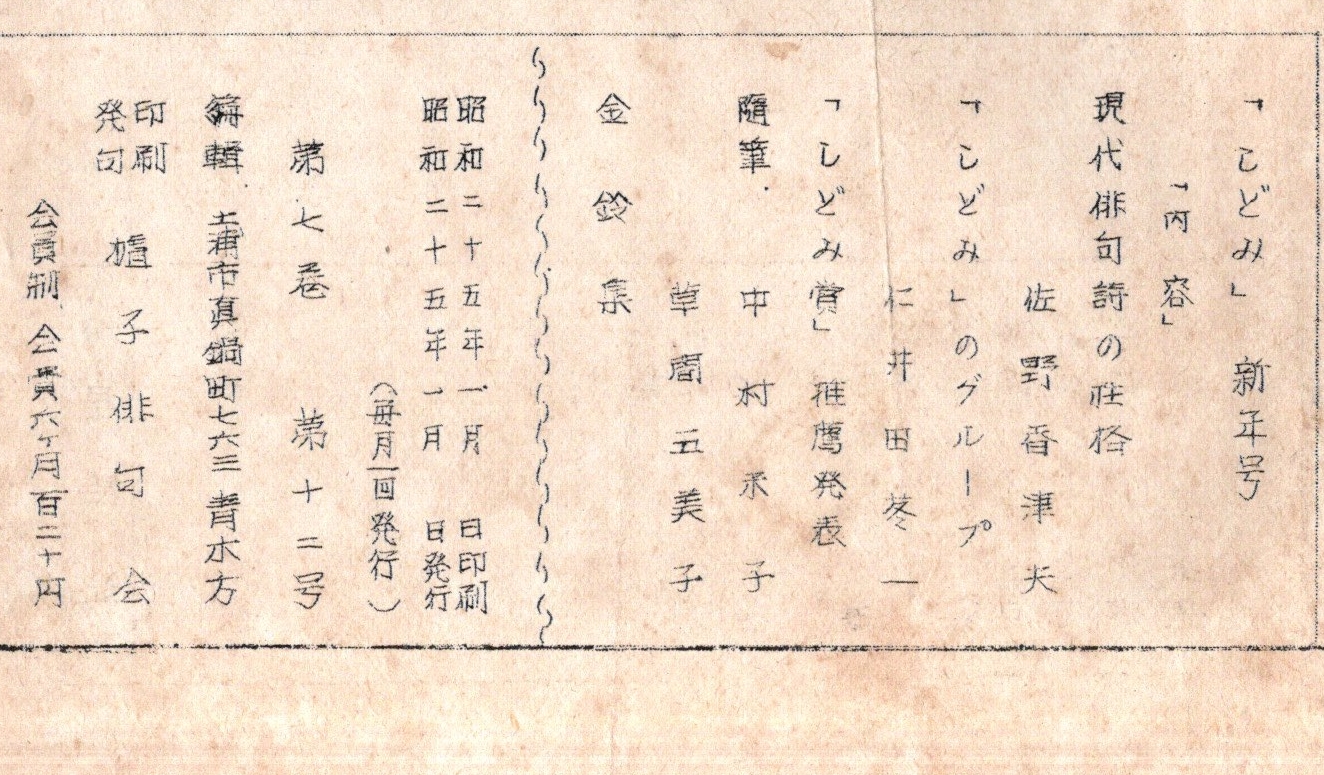 「しどみ」新年号
「内容」
現代俳句詩の性格
佐野香津夫
「しどみ」のグループ
仁井田苳一
「しどみ賞」推薦発表
随筆 中村禾子
草間五美子
金鈴集
昭和二十五年一月 日印刷
昭和二十五年一月 日発行
(毎月一回発行)
第七巻 第十二号
編輯 土浦市真鍋町七六三 青木方
印刷
発句 樝子俳句会
会員制 会費六ケ月百二十円